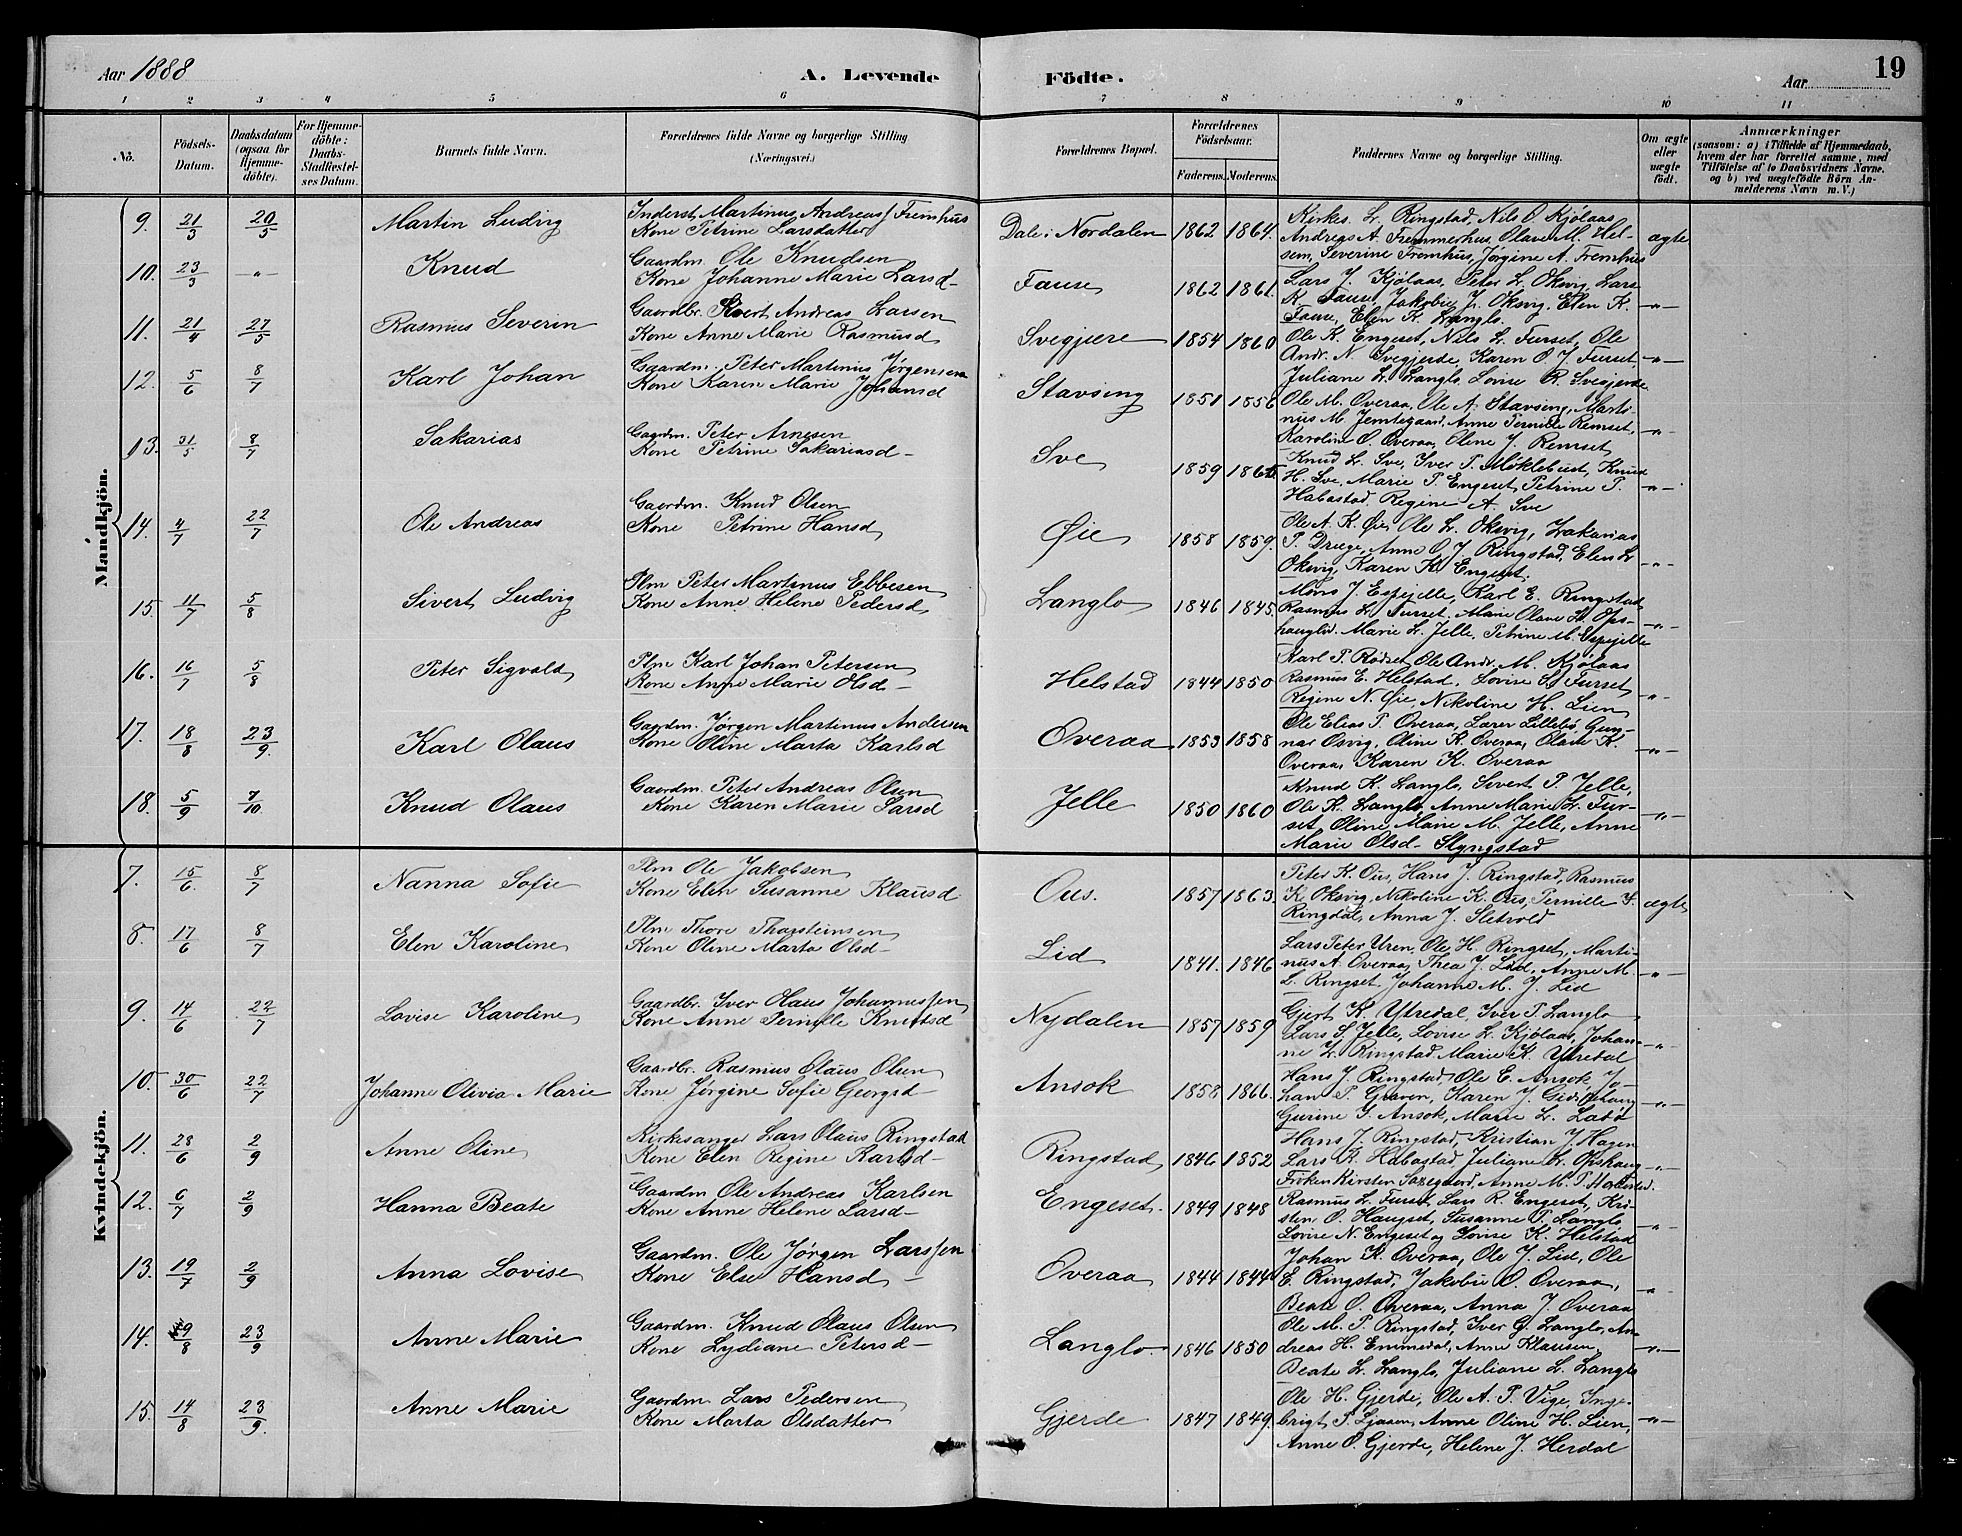 Aar 1888
A. Levende Födte.
Aar
19
1 2 3 4 5 6 7 8 9 10 11
No.
Födsels-Datum.
Daabsdatum (ogsaa for Hjemme-döbte).
For Hjemme-döbte: Daabs-Stadfæstel-ses Datum.
Barnets fulde Navn.
Forældrenes fulde Navne og borgerlige Stilling
(Næringsvei.)
Forældrenes Bopæl.
Forældrenes Födselsaar.
Faderens. Moderens.
Faddernes Navne og borgerlige Stilling.
Om ægte eller uægte födt.
Anmærkninger
(saasom: a) i Tilfælde af Hjemmedaab, hvem der har forrettet samme, med Tilföielse af to Daabsvidners Navne. og b) ved uægtefödte Börn An-melderens Navn m. V.)
Mandkjön.
9. 21/3 20/5 Martin Ludvig
Inderst Martinus Andreas Fremhus
Kone Petrine Larsdatter
Dale i Nordalen 1862 1864.
Kirkes. L. Ringstad, Nils O. Kjølaas
Andreas A. Fremmerhus, Olave M. Hel-
sem, Severine Fremhus, Jørgine A. Fremhus
ægte
10. 23/3 -"- Knud
Gaardm. Ole Knudsen
Kone Johanne Marie Larsd-
Fause 1862 1861.
Lars J. Kjølaas, Peter L. Oksvig, Lars
K. Fause, Jakobie J. Oksvig, Elen K.
Fause, Elen K. Langlo
-"-
11. 21/4 27/5 Rasmus Severin
Gaardbr. Sivert Andreas Larsen
Kone Anne Marie Rasmusd
Svegjere 1854 1860
Ole K. Engeset, Nils L. Furset, Ole
Andr. N. Svegjerde, Karen O. J. Furset,
Juliane L. Langlo, Lovise R. Svegjerde
-"-
12. 5/6 8/7 Karl Johan
Gaardm. Peter Martinus Jørgensen
Kone Karen Marie Johansd
Stavseng 1851 1856
Ole M. Overaa, Ole A. Stavseng, Marti-
nus M. Jemtegaard, Anne Pernille Remset,
Karoline O. Overaa, Oline J. Remset
-"-
13. 31/5 8/7 Sakarias
Gaardm. Peter Arnesen
Kone Petrine Sakariasd-
Sve 1859 1865
Knud L. Sve, Iver P. Møklebust, Knud
H. Sve, Marie P. Engeset, Petrine P.
Habostad, Regine A. Sve
-"-
14. 4/7 22/7 Ole Andreas
Gaardm. Knud Olsen
Kone Petrine Hansd
Øie 1858 1859.
Ole A. K. Øie, Ole L. Oksvig, Zakarias
P. Drege, Anne O. J. Ringstad, Elen L.
Oksvig, Karen K. Engeset.
-"-
15. 11/7 5/8 Sivert Ludvig
Plm Peter Martinus Ebbesen
Kone Anne Helene Pedersd
Langlo 1846 1845.
Mons J. Espejelle, Karl E. Ringstad
Rasmus L. Furset, Marie Olave L. Ops-
hauglid, Marie L. Jelle, Petrine M. Espejelle
-"-
16. 16/7 5/8 Peter Sigvald
Plm Karl Johan Petersen
Kone Anne Marie Olsd-
Helstad 1844 1850
Karl P. Rødset, Ole Andr. M. Kjølaas
Rasmus E. Helstad, Lovise L. Furset
Regine N. Øie, Nikoline H. Lien
-"-
17. 18/8 23/9. Karl Olaus
Gaardm. Jørgen Martinus Andersen
Kone Oline Marta Karlsd
Overaa 1853 1858
Ole Elias P. Overaa, Lærer Lillebø, Gun-
nar Osvig, Oline K. Overaa, Olave K.
Overaa, Karen K. Overaa
-"-
18. 5/9 7/10 Knud Olaus
Gaardm. Peter Andreas Olsen
Kone Karen Marie Larsd
Jelle 1850 1860
Knud K. Langlo, Sivert P. Jelle,
Ole K. Langlo, Anne Marie L. Fur-
set, Oline Marie M. Jelle, Anne
Marie Olsd- Slyngstad
-"-
Kvindekjön.
7. 15/6. 8/7 Nanna Sofie
Plm Ole Jakobsen
Kone Elen Susanne Klausd
Ous. 1857 1863.
Peter K. Ous, Hans J. Ringstad, Rasmus
K. Oksvig, Nikoline K. Ous, Pernille S.
Ringdal, Anna J. Sletvold
ægte
8. 17/6 8/7 Elen Karoline
Plm Thore Thorsteinsen
Kone Oline Marta Olsd-
Lid 1841. 1846
Lars Peter Uren, Ole H. Ringset, Marti-
nus A. Overaa, Thea J. Lid, Anne M.
L. Ringset, Johanne M. J. Lid
-"-
9. 14/6 22/7 Lovise Karoline
Gaardbr. Iver Olaus Johannessen
Kone Anne Pernille Knutsd
Nydalen 1857 1859
Gjert K. Ytredal, Iver P. Langlo
Lars S. Jelle, Lovise L. Kjølaas, Johan-
ne L. Ringstad, Marie K. Ytredal
-"-
10. 30/6 22/7 Johanne Olivia Marie
Gaardbr. Rasmus Olaus Olsen
Kone Jørgine Sofie Georgsd-
Ansok 1858 1866.
Hans J. Ringstad, Ole E. Ansok, Jo-
han P. Graven, Karen J.
Gurine G. Ansok, Marie L. Ladø
-"-
11. 28/6 2/9 Anne Oline
Kirkesanger Lars Olaus Ringstad
Kone Elen Regine Karlsd-
Ringstad 1846 1852
Hans J. Ringstad, Kristian J. Hagen
Lars A. Habostad, Juliane L. Opshaug
Frøken Kirsten Saxegaard, Anne M. P. Habostad.
-"-
12. 6/7 2/9 Hanna Beate
Gaardm Ole Andreas Karlsen
Kone Anne Helene Larsd-
Engeset. 1849 1848
Rasmus L. Furset, Lars R. Engeset, Kri-
sten O. Haugset, Susanne P. Langlo,
Lovise N. Engeset og Lovise K. Helstad
-"-
13. 19/7 2/9 Anna Lovise
Gaardm. Ole Jørgen Larssen
Kone Else Hansd-
Overaa 1844 1844
Johan K. Overaa, Ole J. Lid, Ole
E. Ringstad, Jakobie O. Overaa,
Beate O. Overaa, Anna J. Overaa
-"-
14. 19/8 23/9 Anne Marie
Gaardm. Knud Olaus Olsen
Kone Lydiane Petersd-
Langlo. 1846 1850
Ole M. P. Ringstad, Iver G. Langlo, An-
dreas H. Emmedal, Anne Klausen,
Beate L. Langlo, Juliane L. Langlo
-"-
15. 14/8 23/9. Anne Marie
Gaardm Lars Pedersen
Kone Marta Olsdatter
Gjerde 1847 1849.
Ole H. Gjerde, Ole A. P. Vige, Inge-
brigt P. Ljøsen, Anne Oline H. Lien,
Anne O. Gjerde, Helene J. Herdal
-"-